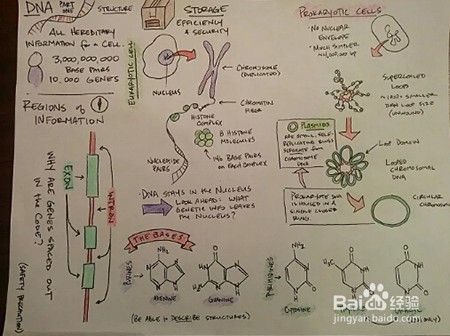 DNA PART ONE STRUCTURE
ALL HEREDITARY
INFORMATION for a CELL.
3,000,000,000
BASE PAIRS
10,000 GENES
REGIONS of
INFORMATION
EXON
INTRON
WHY ARE GENES SPACED OUT
IN THE CODE?
STORAGE
EFFICIENCY
& SECURITY
EUKARYOTIC CELL
NUCLEUS
CHROMOSOME
(DUPLICATED)
CHROMATIN
FIBER
HISTONE
COMPLEX
8 HISTONE
MOLECULES
146 BASE PAIRS
ON EACH COMPLEX
NUCLEOTIDE
PAIRS
DNA STAYS IN THE NUCLEUS
LOOK AHEAD: WHAT
GENETIC INFO LEAVES
THE NUCLEUS?
PROKARYOTIC CELLS
NO NUCLEAR
ENVELOPE
MUCH SIMPLER
SUPERCOILED
LOOPS
DNA LOOP SIZE
(UNWOUND)
PLASMIDS
ARE SMALL, SELF-
REPLICATING RINGS
SEPARATE from
CHROMOSOME
DNA
LOOP DOMAIN
LOOPED
CHROMOSOMAL
DNA
PROKARYOTE DNA
IS HOUSED IN A
SINGLE LOOPED
RING.
CIRCULAR
THE BASES
PURINES
NH₂
ADENINE
GUANINE
PYRIMIDINES
NH₂
CYTOSINE
H₃C
(BE ABLE to DESCRIBE STRUCTURES)
Baidu 经验
jingyan.baidu.com